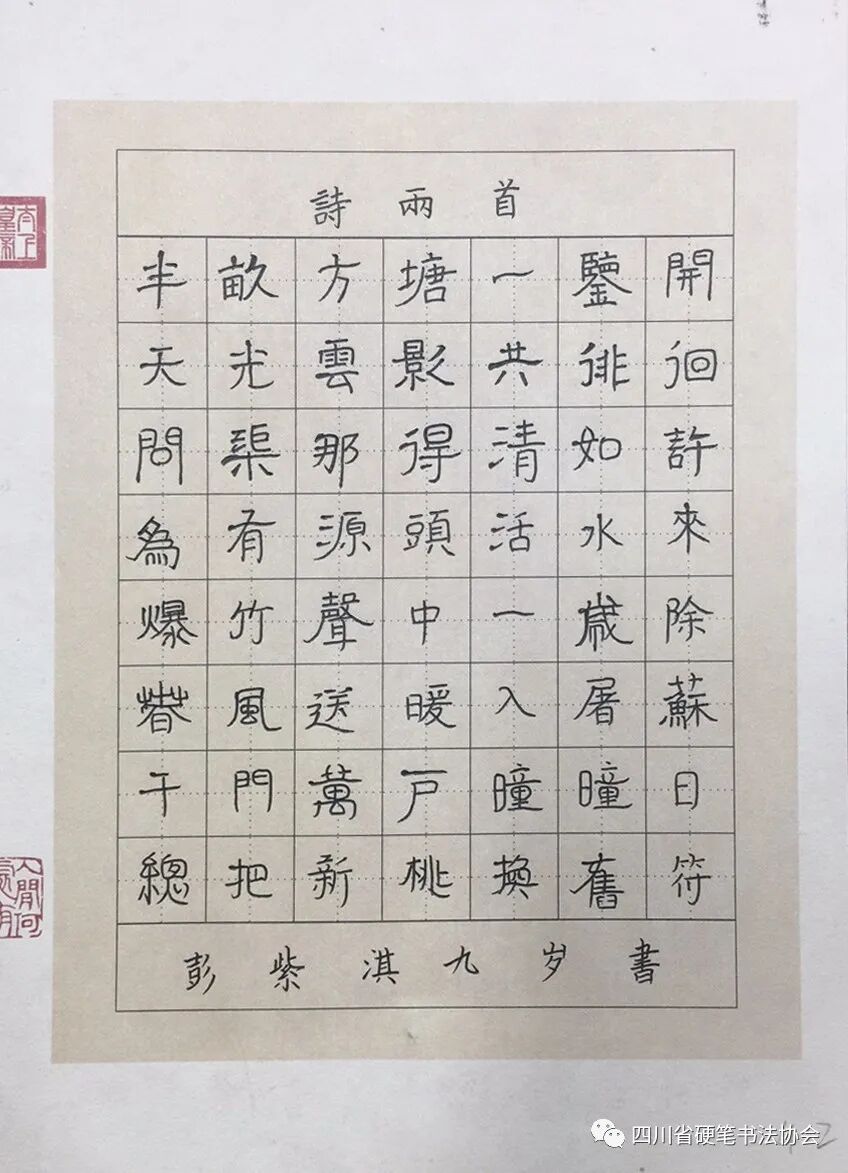 詩兩首
半畝方塘一鑒開
天光雲影共徘徊
問渠那得清如許
為有源頭活水來
爆竹聲中一歲除
春風送暖入屠蘇
千門萬戶曈曈日
總把新桃換舊符
彭紫淇九岁書
四川省硬笔书法协会